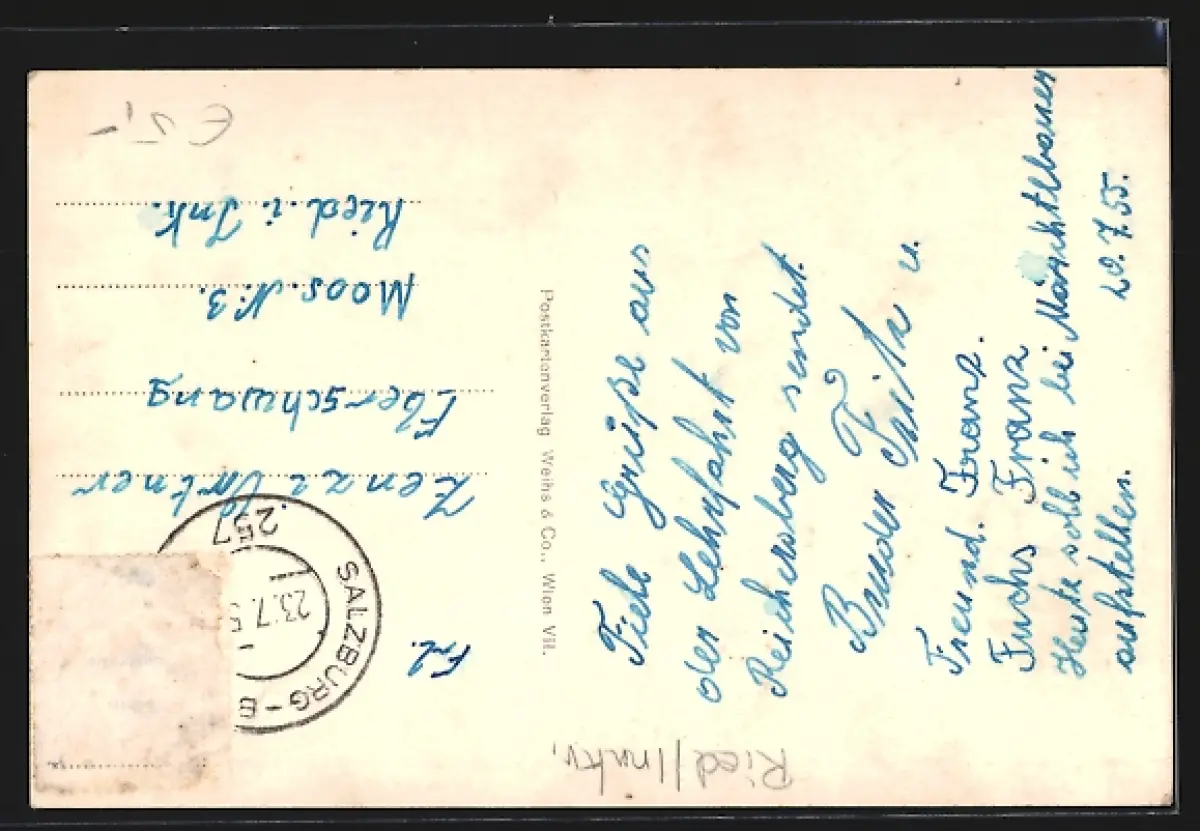 Fiele Grüße aus
der Lehrfahrt von
Reichersberg sendet.
Bruder Fritz u.
Freund. Franz.
Fuchs Franz
Heute soll ich bei
aufstellen. 20.7.55.
Postkartenverlag Weihs & Co., Wien VII.
Frl.
Zenzi
Eberschwang
Moos. N: 3.
Ried. i. Ink.
SALZBURG-E
257
23.7.5
Ried/Innkr.